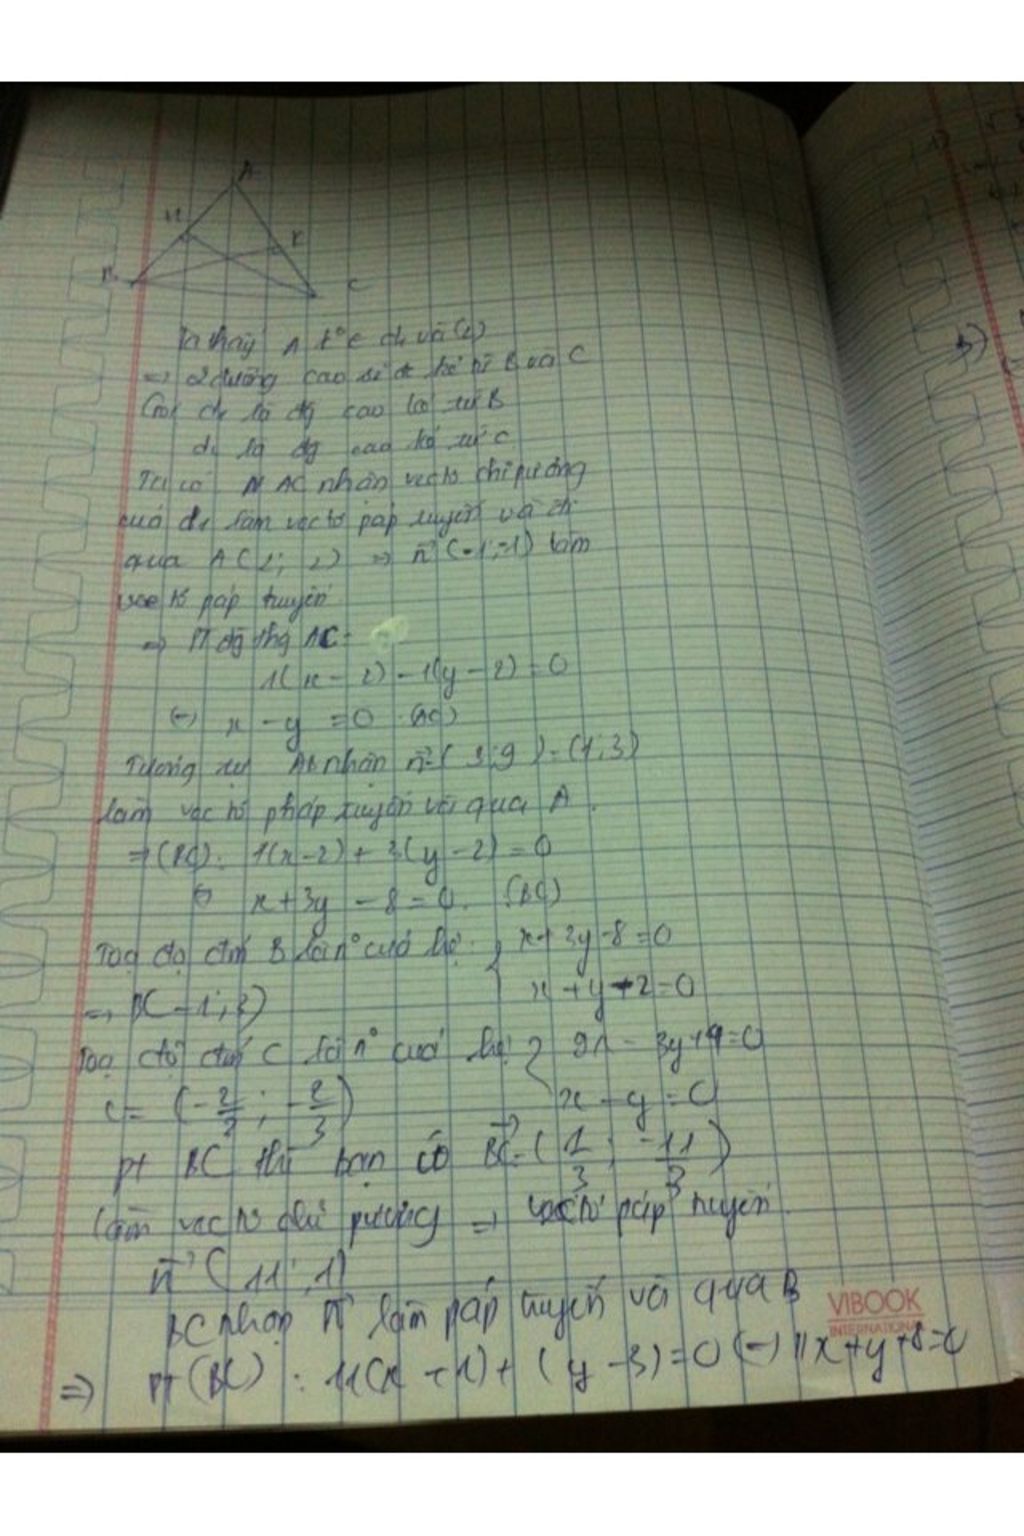 A
H
K
B
C
Ta thấy A
=> 2 đường cao sẽ kẻ từ B và C
là đg cao kẻ từ B
là đg cao kẻ từ C
Ta có AC nhận vectơ chỉ pương
của làm vectơ páp tuyến và đi
qua A(2; 2) => n (-1;-1) làm
vectơ páp tuyến
=> PT đg thg AC:
1(x - 2) - 1(y - 2) = 0
(-) x - y = 0 (AC)
Tương tự AB nhận n = (3;9) = (1;3)
làm vectơ pháp tuyến và qua A.
=> (BC): 1(x-2) + 3(y-2) = 0
x + 3y - 8 = 0. (BC)
Toạ độ B là n° của hệ: x + 3y - 8 = 0
x + y - 2 = 0
=> B(-1; 3)
Toạ độ C là n° của hệ 9x - 3y + 4 = 0
x - y = 0
C = (-2/3; -2/3)
pt BC thì bạn có BC = (1/3; -11/3)
làm vectơ chỉ pương => vectơ páp tuyến
n (11; 1)
BC nhận n làm páp tuyến và qua B
=> PT (BC): 11(x + 1) + (y - 3) = 0 (-) 11x + y + 8 = 0
VIBOOK
INTERNATIONAL